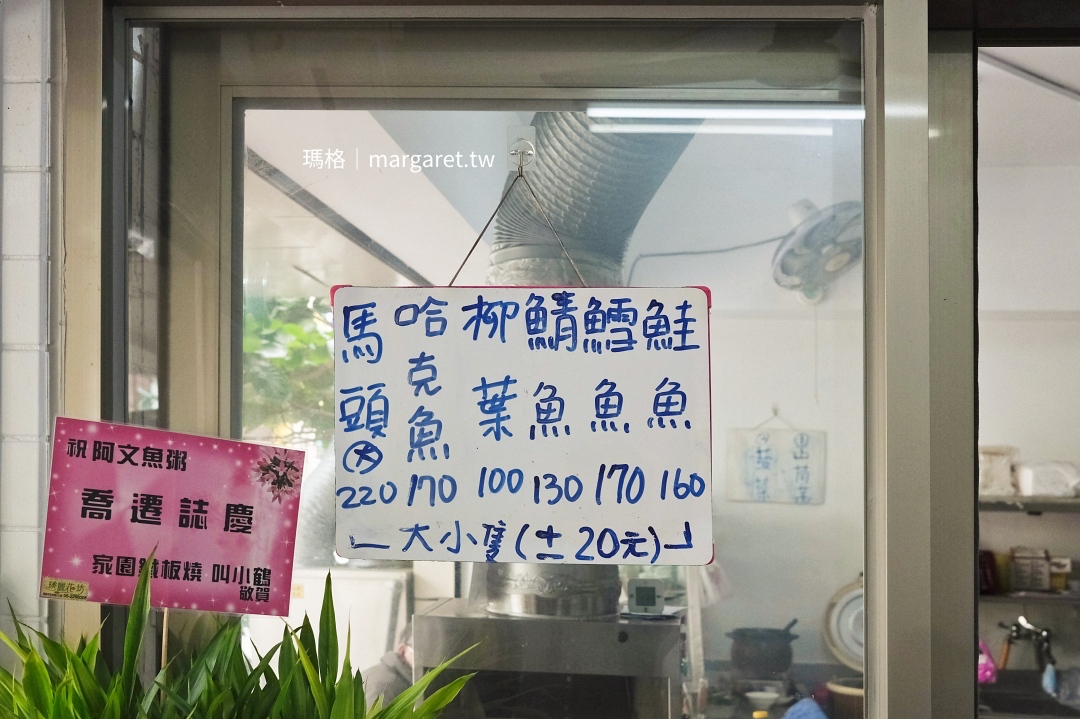 瑪格｜margaret.tw
鮭魚 160
鱈魚 170
鯖魚 130
柳葉 100
哈克魚 170
馬頭(大) 220
大小隻(±20元)
祝 阿文魚粥
喬遷誌慶
家園鐵板燒 叫小鶴
敬賀
琇麗花坊